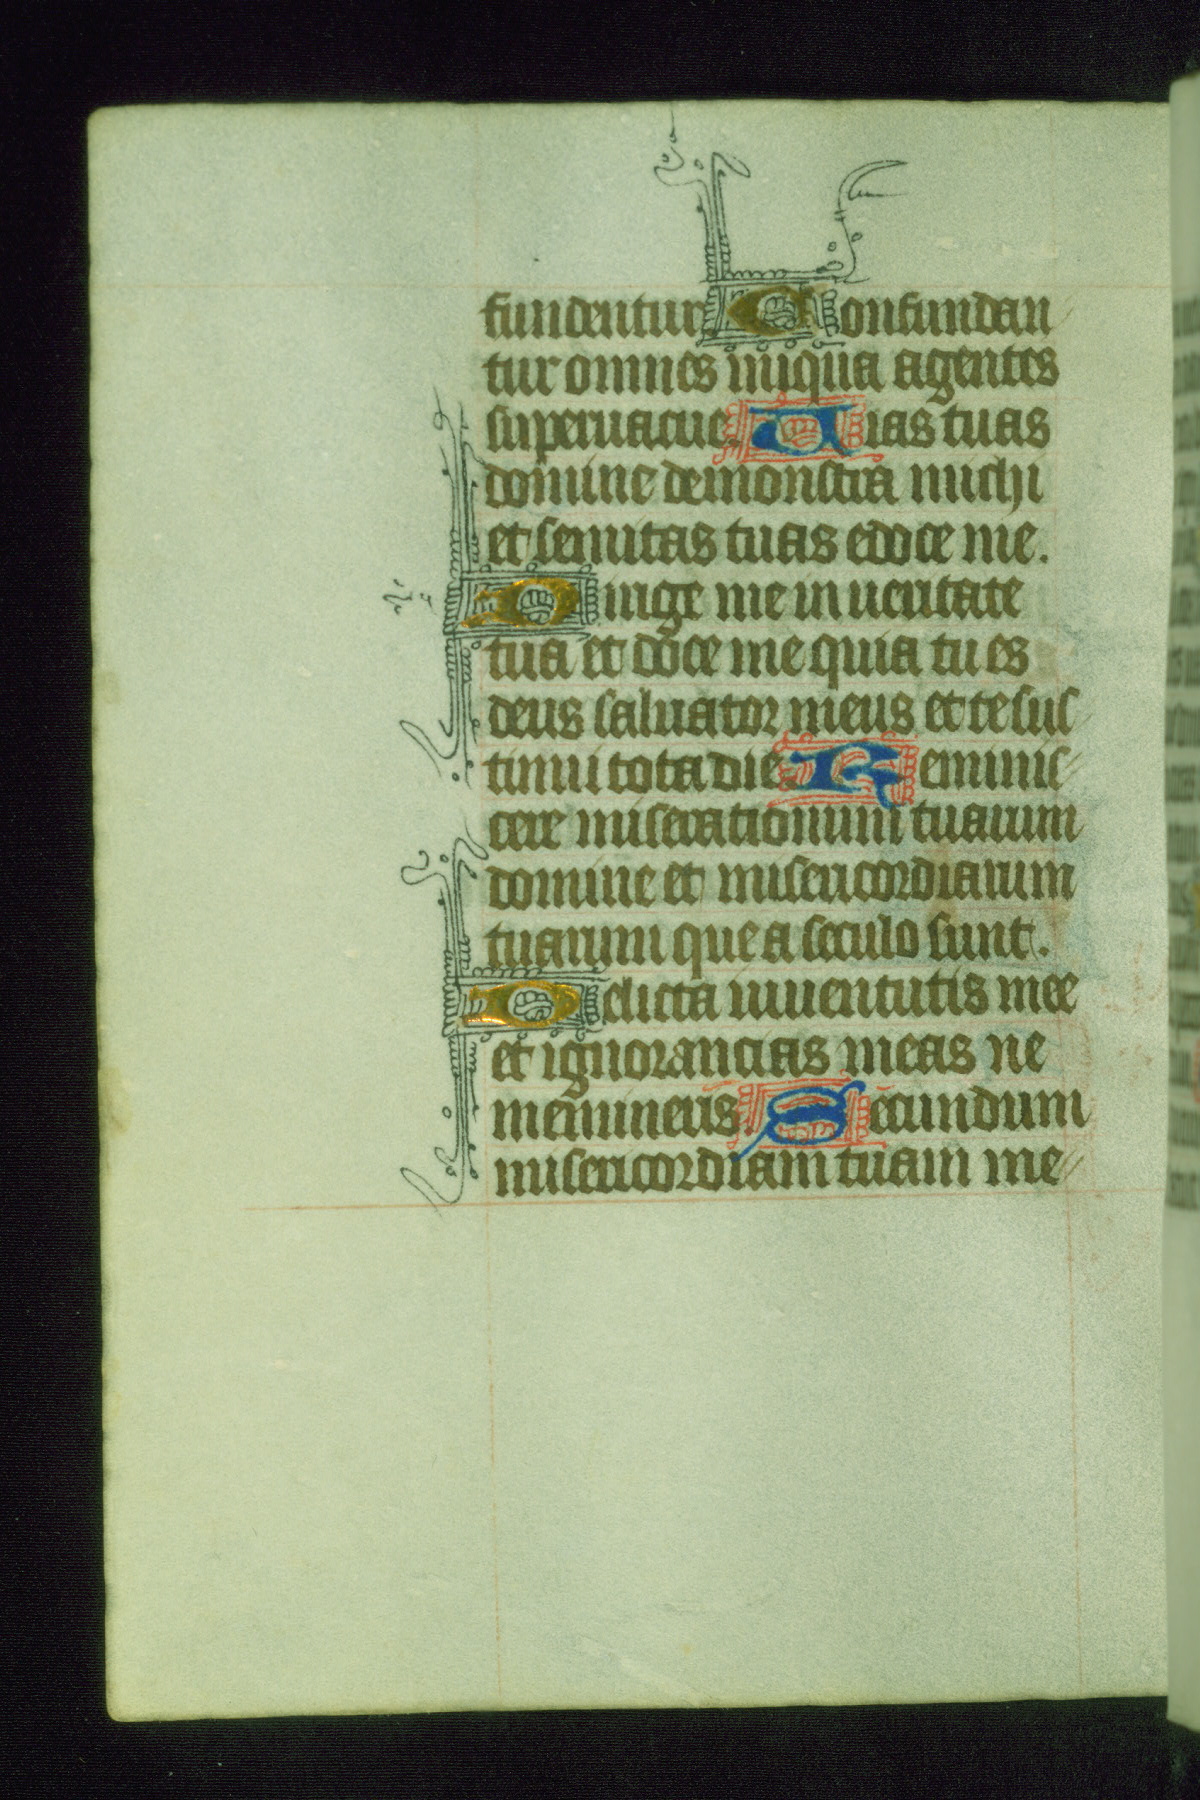 fundentur Confundan
tur omnes iniqua agentes
superuacue. Uias tuas
domine demonstra michi
et semitas tuas edoce me.
Dirige me in ueritate
tua et doce me quia tu es
deus saluator meus et te sus
tinui tota die. Reminis
cere miserationum tuarum
domine et misericordiarum
tuarum que a seculo sunt.
Delicta iuuentutis mee
et ignorancias meas ne
memineris. Secundum
misericordiam tuam me